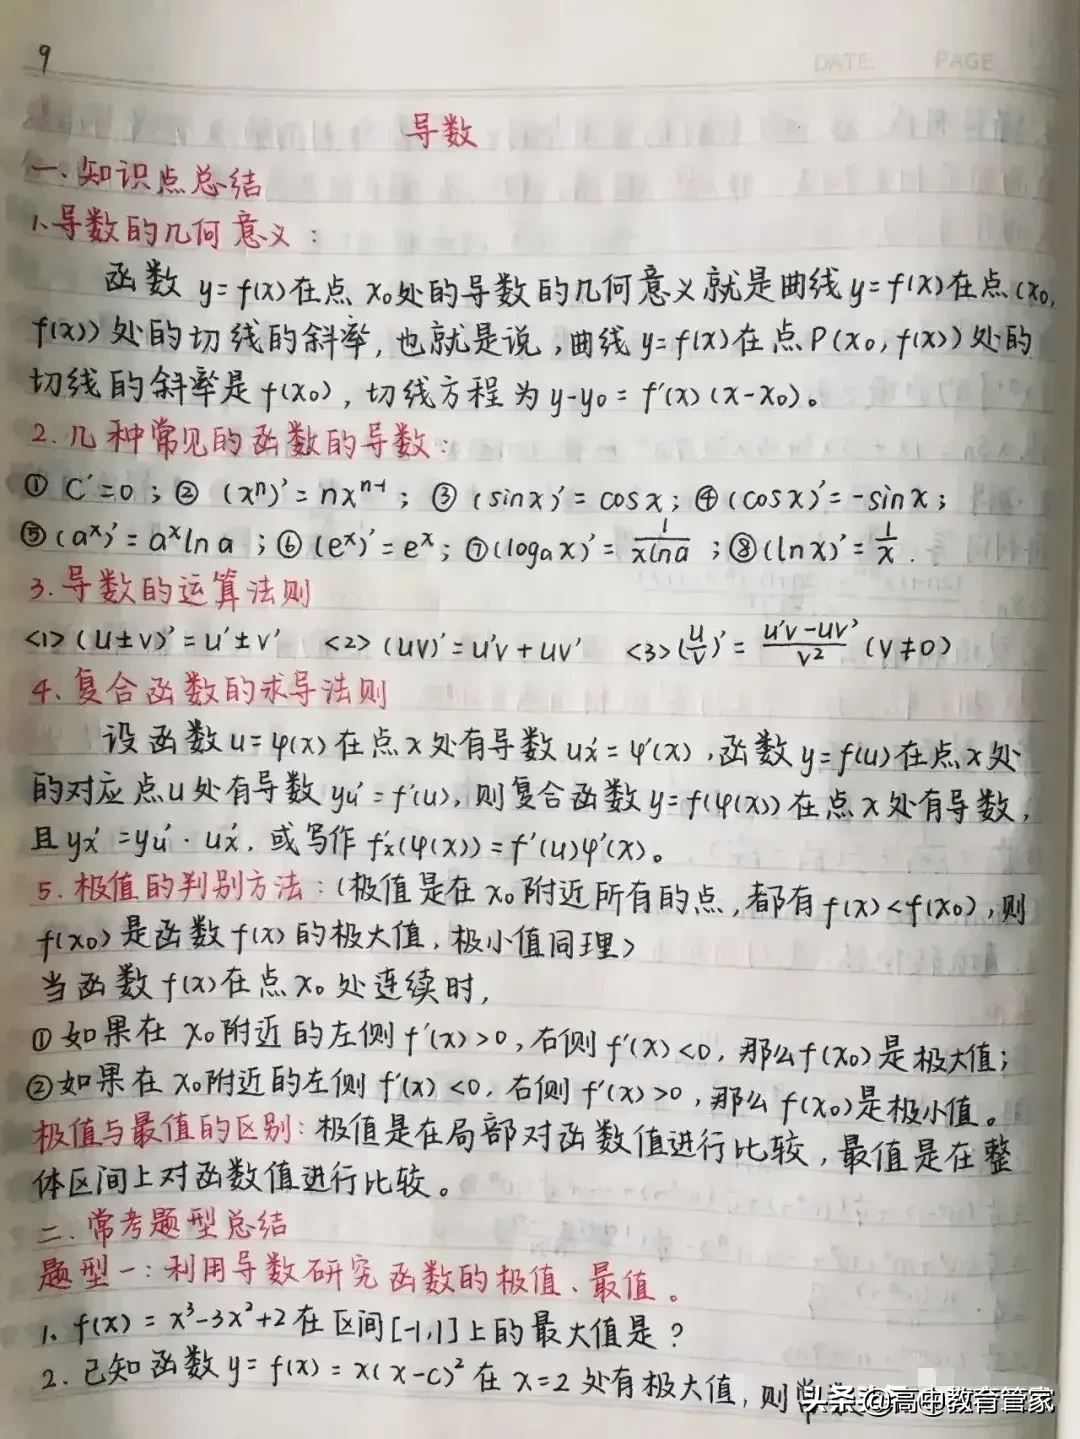 9
DATE PAGE
导数
一、知识点总结
1、导数的几何意义：
函数 y=f(x)在点 x₀处的导数的几何意义就是曲线y=f(x)在点(x₀,
f(x))处的切线的斜率，也就是说，曲线y=f(x)在点P(x₀,f(x))处的
切线的斜率是f(x₀)，切线方程为y-y₀=f′(x)(x-x₀)。
2.几种常见的函数的导数：
① C′=0；② (xⁿ)′=nxⁿ⁻¹；③ (sinx)′=cosx；④(cosx)′=-sinx；
⑤(aˣ)′=aˣlna；⑥(eˣ)′=eˣ；⑦(logₐx)′=1/(xlna)；⑧(lnx)′=1/x.
3.导数的运算法则
<1>(u±v)′=u′±v′ <2>(uv)′=u′v+uv′ <3>(u/v)′=(u′v-uv′)/v²(v≠0)
4.复合函数的求导法则
设函数u=φ(x)在点x处有导数ux′=φ′(x)，函数y=f(u)在点x处
的对应点u处有导数yu′=f′(u)，则复合函数y=f(φ(x))在点x处有导数，
且yx′=yu′·ux′，或写作fx′(φ(x))=f′(u)φ′(x)。
5.极值的判别方法：(极值是在x₀附近所有的点，都有f(x)<f(x₀)，则
f(x₀)是函数f(x)的极大值，极小值同理>
当函数f(x)在点x₀处连续时，
①如果在x₀附近的左侧f′(x)>0，右侧f′(x)<0，那么f(x₀)是极大值；
②如果在x₀附近的左侧f′(x)<0，右侧f′(x)>0，那么f(x₀)是极小值。
极值与最值的区别：极值是在局部对函数值进行比较，最值是在整
体区间上对函数值进行比较。
二.常考题型总结
题型一：利用导数研究函数的极值、最值。
1、f(x)=x³-3x²+2在区间[-1,1]上的最大值是？
2.已知函数y=f(x)=x(x-c)²在x=2处有极大值，则
头条 @高中教育管家